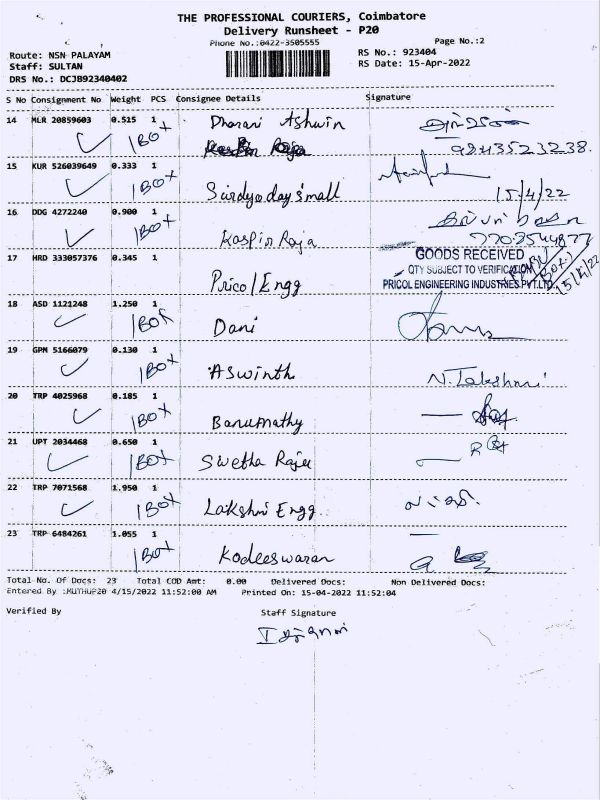 THE PROFESSIONAL COURIERS, Coimbatore
Delivery Runsheet - P20
Phone No.:0422-3505555
Page No.:2
Route: NSN PALAYAM
RS No.: 923404
Staff: SULTAN
RS Date: 15-Apr-2022
DRS No.: DCJB92340402
S No Consignment No Weight PCS Consignee Details Signature
14 MLR 20859603 0.515 1 Dharani Ashwin
1 Box
9243523238.
15 KUR 526039649 0.333 1
1 Box
15/4/22
16 DDG 4272240 0.900 1
1 Box Kaspin Raja
17 HRD 333057376 0.345 1 GOODS RECEIVED
QTY SUBJECT TO VERIFICATION
Pricol Engg PRICOL ENGINEERING INDUSTRIES PVT.LTD.
15/4/22
18 ASD 1121248 1.250 1
1 Box Dani
19 GPM 5166079 0.130 1
1 Box Aswinth N. Lakshmi
20 TRP 4025968 0.185 1
1 Box Banumathy
21 UPT 2034468 0.650 1
1 Box Swetha Rajee
22 TRP 7071568 1.950 1
1 Box Lakshmi Engg
23 TRP 6484261 1.055 1
1 Box Kodeeswaran
Total No. Of Docs: 23 Total COD Amt: 0.00 Delivered Docs: Non Delivered Docs:
Entered By :MUTHUP20 4/15/2022 11:52:00 AM Printed On: 15-04-2022 11:52:04
Verified By Staff Signature